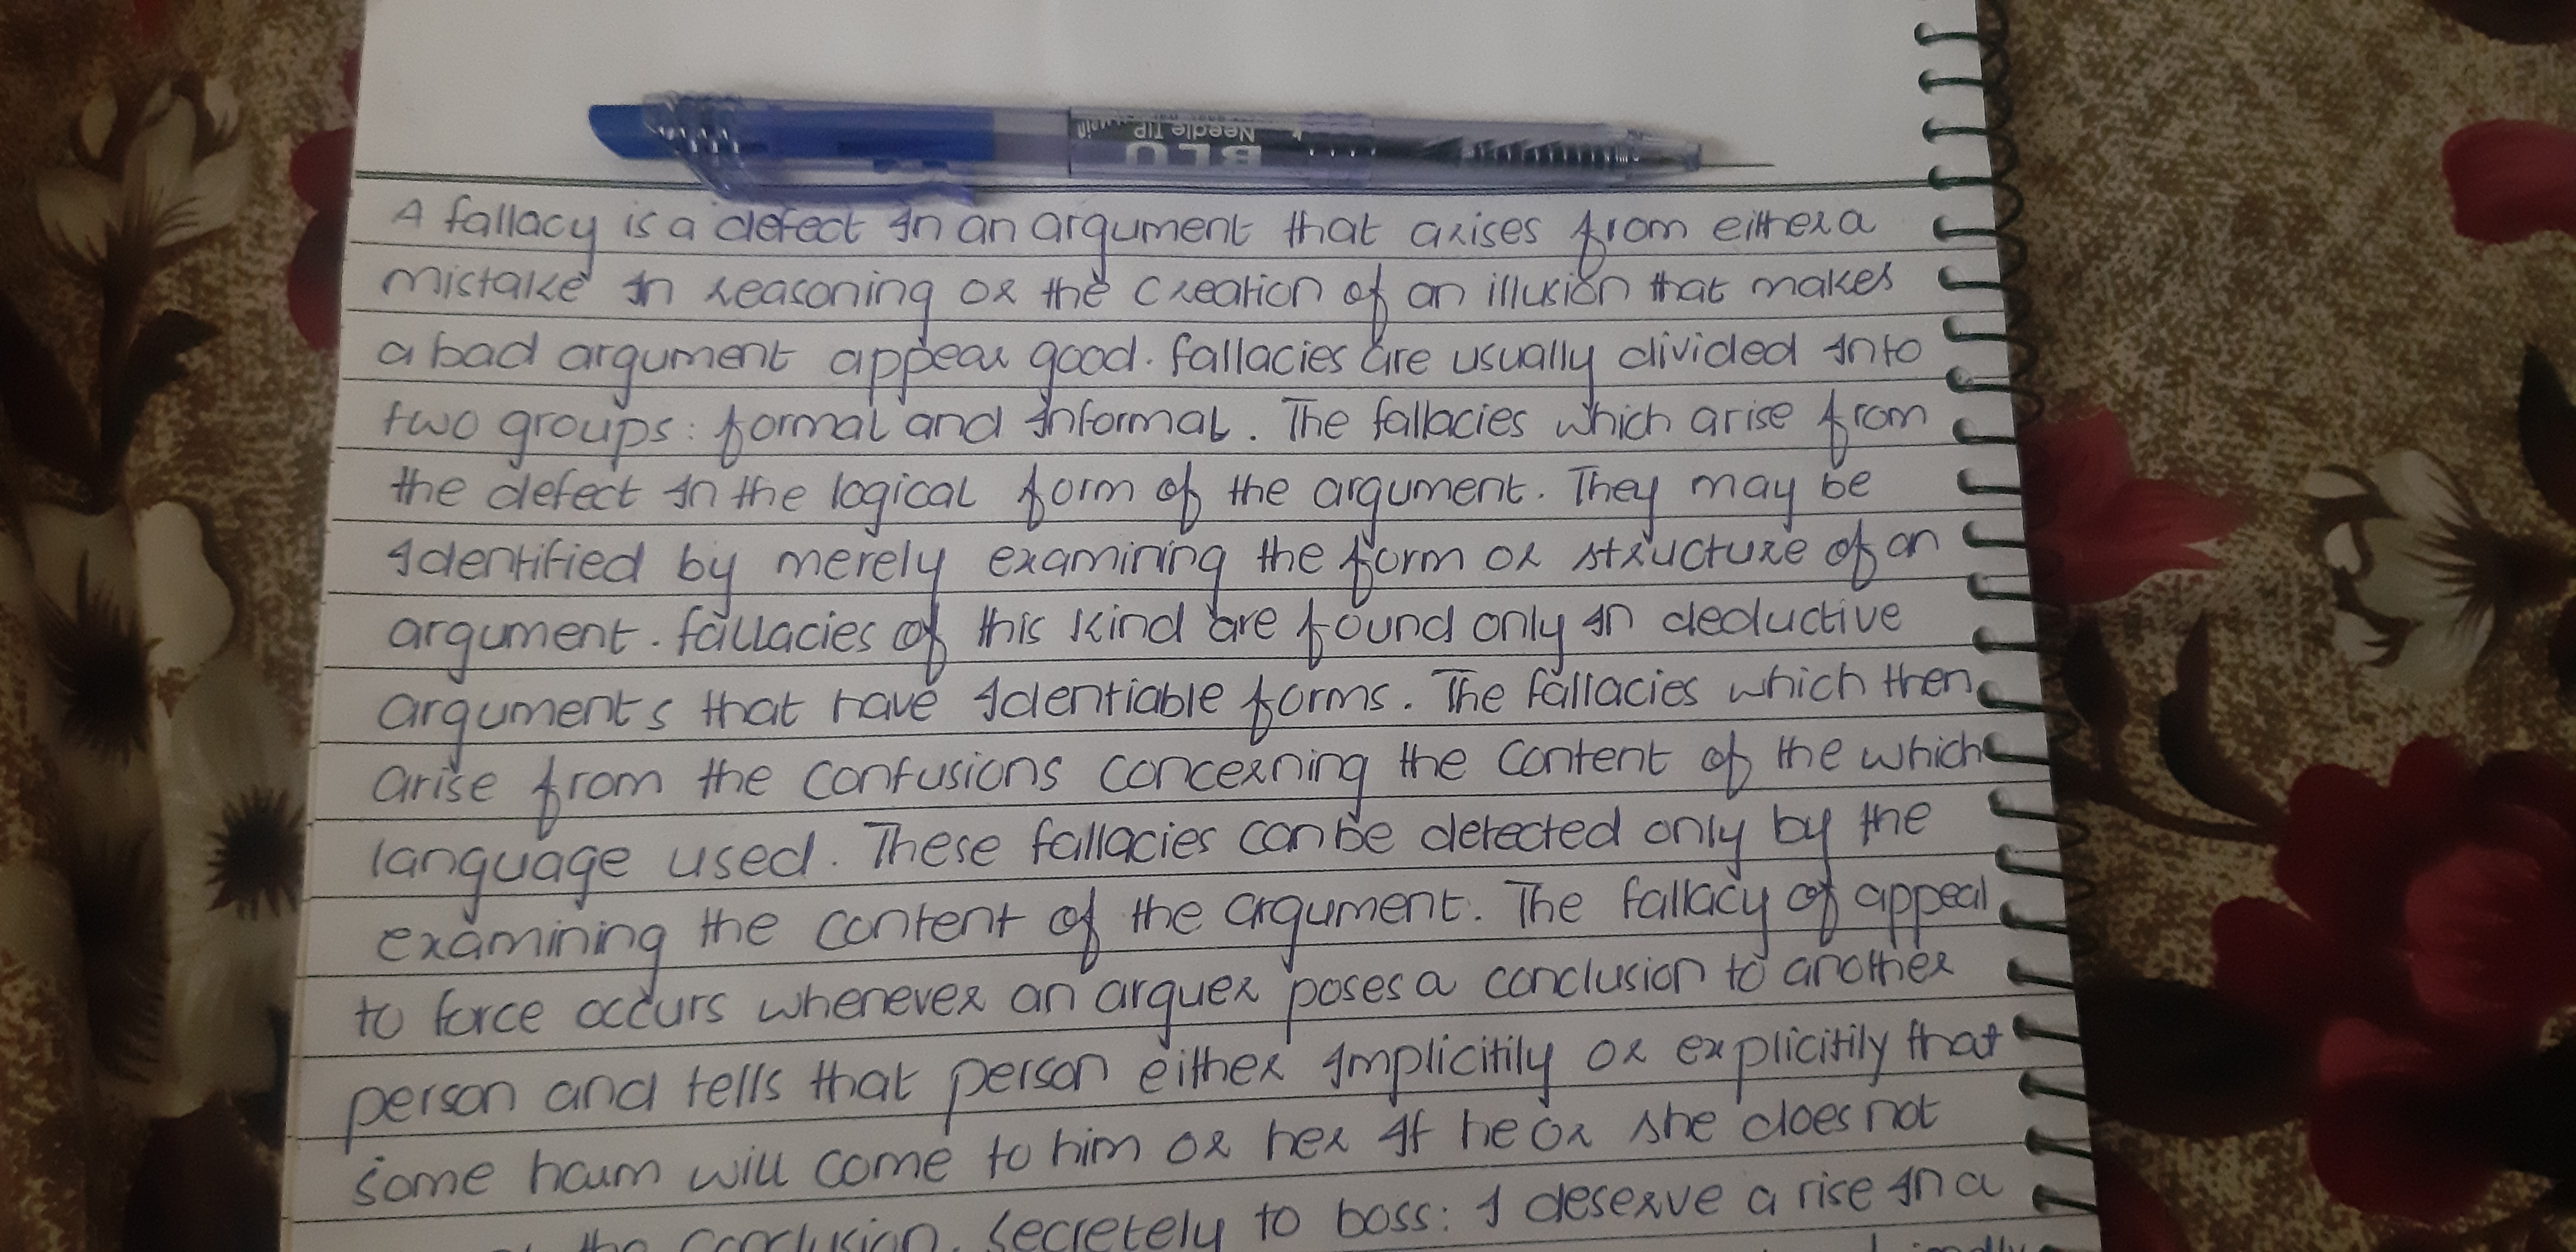 BLU
Needle TIP
A fallacy is a defect in an argument that arises from either a
mistake in reasoning or the creation of an illusion that makes
a bad argument appear good. fallacies are usually divided into
two groups: formal and informal. The fallacies which arise from
the defect in the logical form of the argument. They may be
identified by merely examining the form or structure of an
argument. fallacies of this kind are found only in deductive
arguments that have identiable forms. The fallacies which then
arise from the confusions concerning the content of the which
language used. These fallacies can be detected only by the
examining the content of the argument. The fallacy of appeal
to force occurs whenever an arguer poses a conclusion to another
person and tells that person either implicitily or explicitily that
some harm will come to him or her if he or she does not
the conclusion. Secretely to boss: I deserve a rise in a